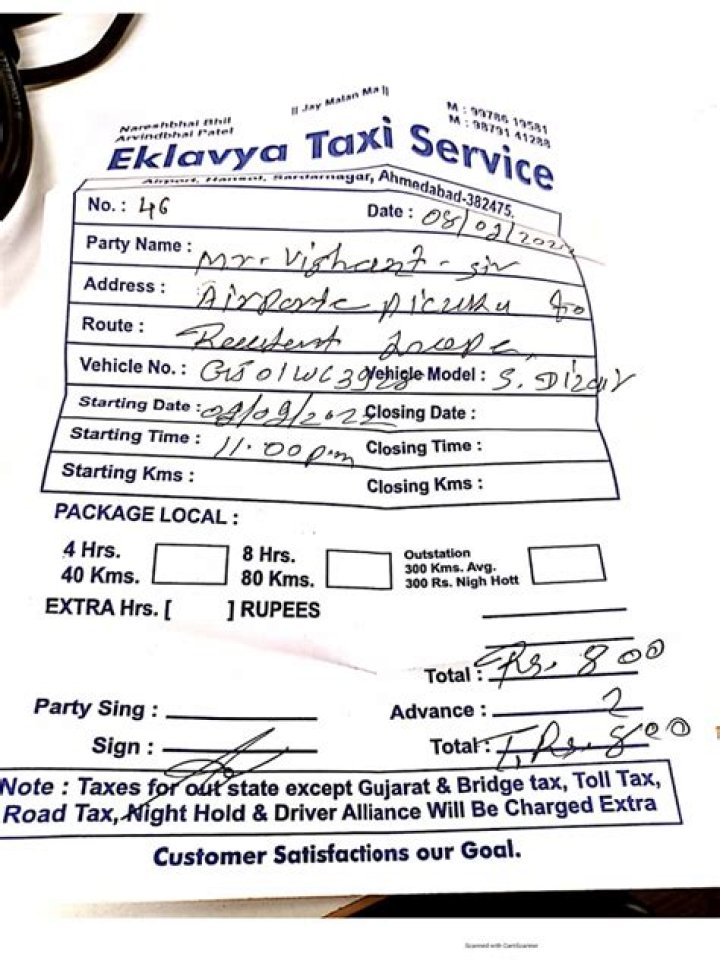 || Jay Matan Ma ||
Nareshbhai Bhil
Arvindbhai Patel
M : 99786 19581
M : 98791 41288
Eklavya Taxi Service
Airport, Hansol, Sardarnagar, Ahmedabad-382475.
No. : 46 Date : 08/02/2022
Party Name : Mr. - sir
Address : Airporte
Route :
Vehicle No. : GJ01WC3928 Vehicle Model : S. Dizair
Starting Date : 08/02/2022 Closing Date :
Starting Time : 11.00 p.m Closing Time :
Starting Kms : Closing Kms :
PACKAGE LOCAL :
4 Hrs.
40 Kms.
8 Hrs.
80 Kms.
Outstation
300 Kms. Avg.
300 Rs. Nigh Hott
EXTRA Hrs. [ ] RUPEES
Total : Rs. 800
Party Sing : Advance :
Sign : Total : T, Rs. 800
Note : Taxes for out state except Gujarat & Bridge tax, Toll Tax,
Road Tax, Night Hold & Driver Alliance Will Be Charged Extra
Customer Satisfactions our Goal.
Scanned with CamScanner